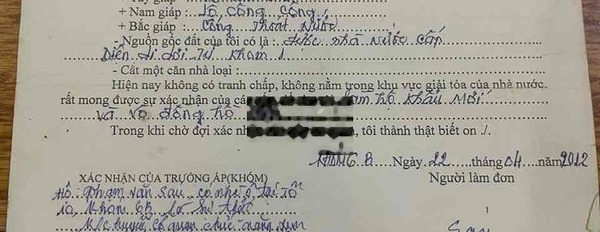 + Nam giáp : Lộ Công Cộng
+ Bắc giáp : Cống Thoát Nước
- Nguồn gốc đất của tôi có là : được nhà nước cấp
Diện di dời từ
- Cất một căn nhà loại :
Hiện nay không có tranh chấp, không nằm trong khu vực giải tỏa của nhà nước,
rất mong được sự xác nhận của hộ khẩu mới
và vô đồng hồ
Trong khi chờ đợi xác , tôi thành thật biết ơn ./.
Ngày 22 tháng 04 năm 2012
XÁC NHẬN CỦA TRƯỞNG ẤP(KHÓM) Người làm đơn
Hộ : Phạm Văn Sau có nhà ở tại Tổ
10 là sự thật
Sau